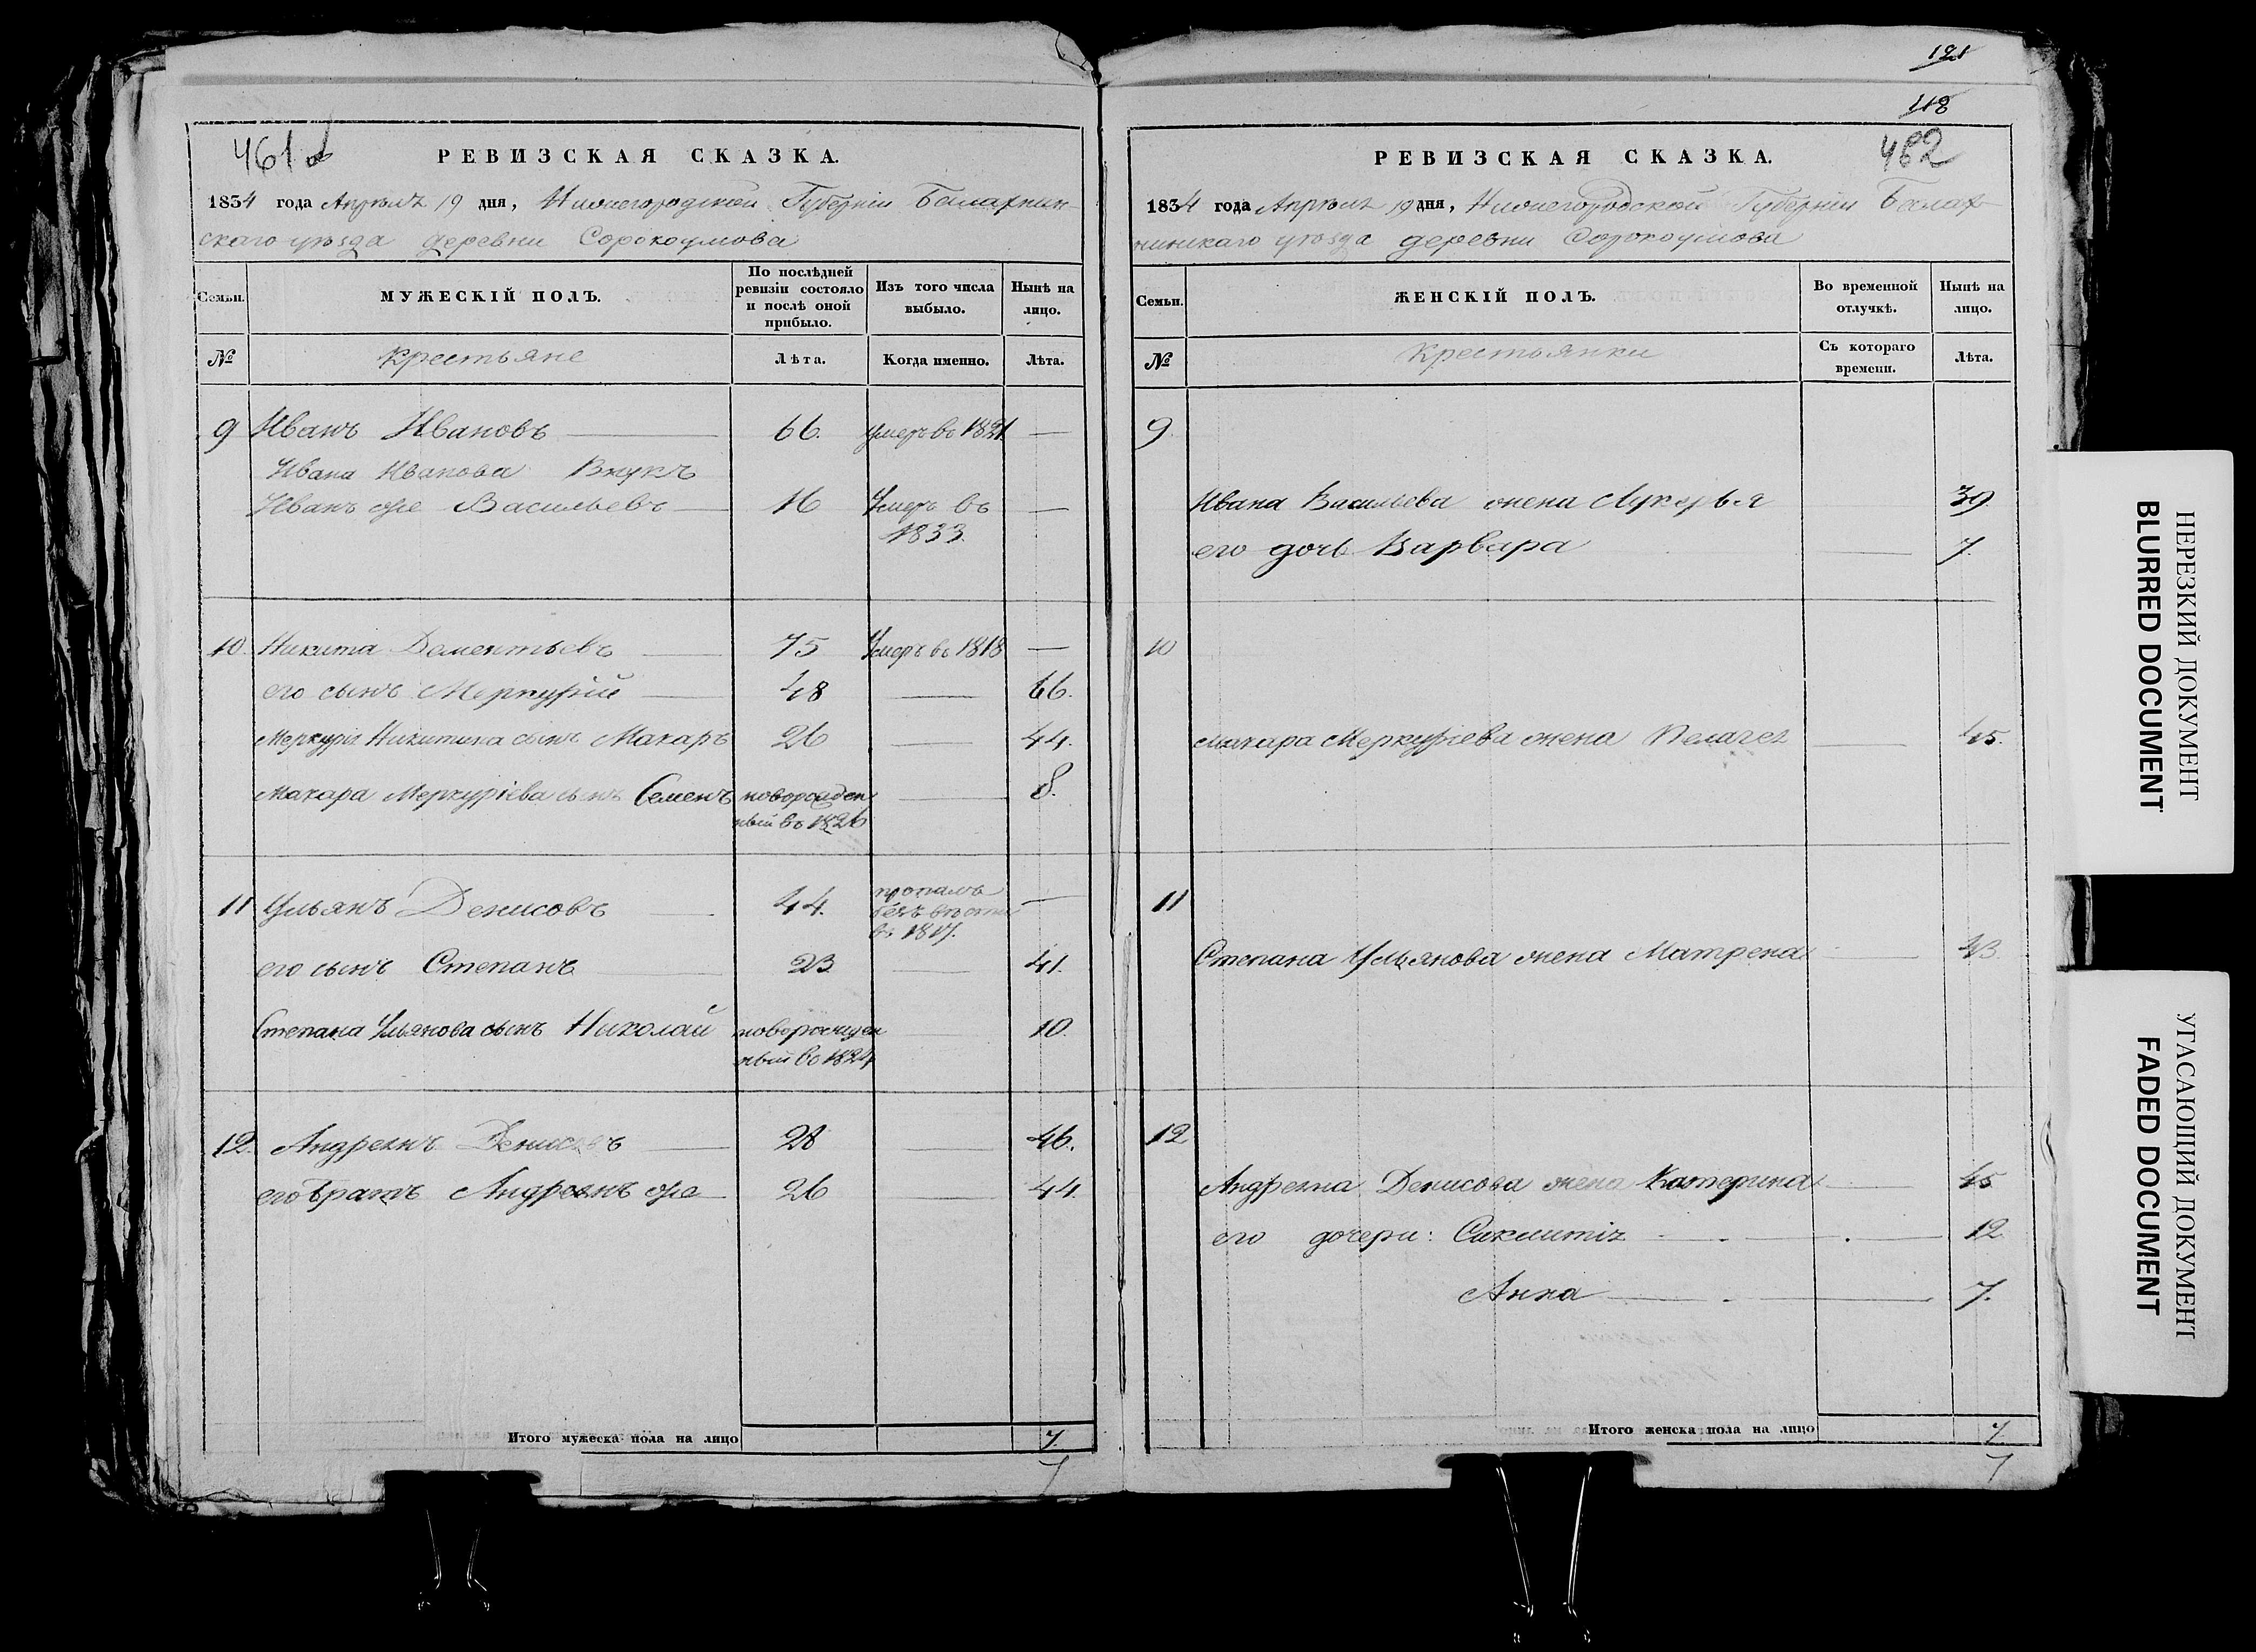 121
118
461 об
РЕВИЗСКАЯ СКАЗКА.
1834 года Апрѣля 19 дня, Нижегородской Губерніи Балахнин-
скаго уѣзда деревни Сорокоумова
Семьи.
МУЖЕСКІЙ ПОЛЪ.
По послѣдней
ревизіи состояло
и послѣ оной
прибыло.
Изъ того числа
выбыло.
Нынѣ на
лицо.
№
Крестьяне
Лѣта.
Когда именно.
Лѣта.
9 Иванъ Ивановъ 66. умеръ въ 1821 —
Ивана Иванова Внукъ
Иванъ же Васильевъ 16 Умеръ въ —
1833.
10. Никита Дементьевъ 75 Умеръ въ 1818 —
его сынъ Меркурій 48 — 66.
Меркурія Никитина сынъ Макаръ 26 — 44.
Макара Меркуріева сынъ Семенъ новорожден — 8.
ный въ 1826
11 Ульянъ Денисовъ 44. пропалъ —
безъ вѣсти
въ 1817.
его сынъ Степанъ 23 — 41.
Степана Ульянова сынъ Николай новорожден 10.
ный въ 1824
12. Андреянъ Денисовъ 28 — 46.
его братъ Андреянъ же 26 — 44.
Итого мужеска пола на лицо 7.
7
РЕВИЗСКАЯ СКАЗКА.
462
1834 года Апрѣля 19 дня, Нижегородской Губерніи Балах-
нинскаго уѣзда деревни Сорокоумова
Семьи.
ЖЕНСКІЙ ПОЛЪ.
Во временной
отлучкѣ.
Нынѣ на
лицо.
№
Крестьянки
Съ котораго
времени.
Лѣта.
9.
Ивана Васильева жена Лукерья 39.
его дочь Варвара — 7.
10
Макара Меркуріева жена Пелагея — 45.
11
Степана Ульянова жена Матрена — 43.
12
Андреяна Денисова жена Катерина — 45
его дочери: 12
Анна — 7.
Итого женска пола на лицо 7
7
НЕРЕЗКИЙ ДОКУМЕНТ
BLURRED DOCUMENT
УГАСАЮЩИЙ ДОКУМЕНТ
FADED DOCUMENT